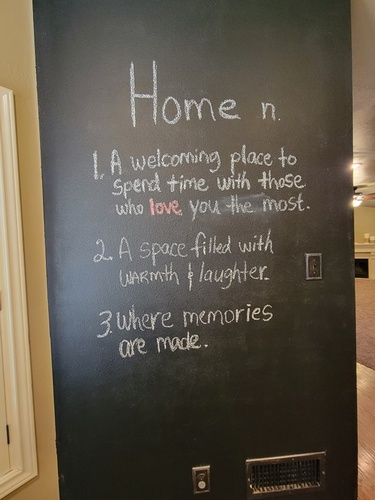 Home n.
1. A welcoming place to
spend time with those
who love you the most.
2. A space filled with
WARMTH & laughter.
3. Where memories
are made.